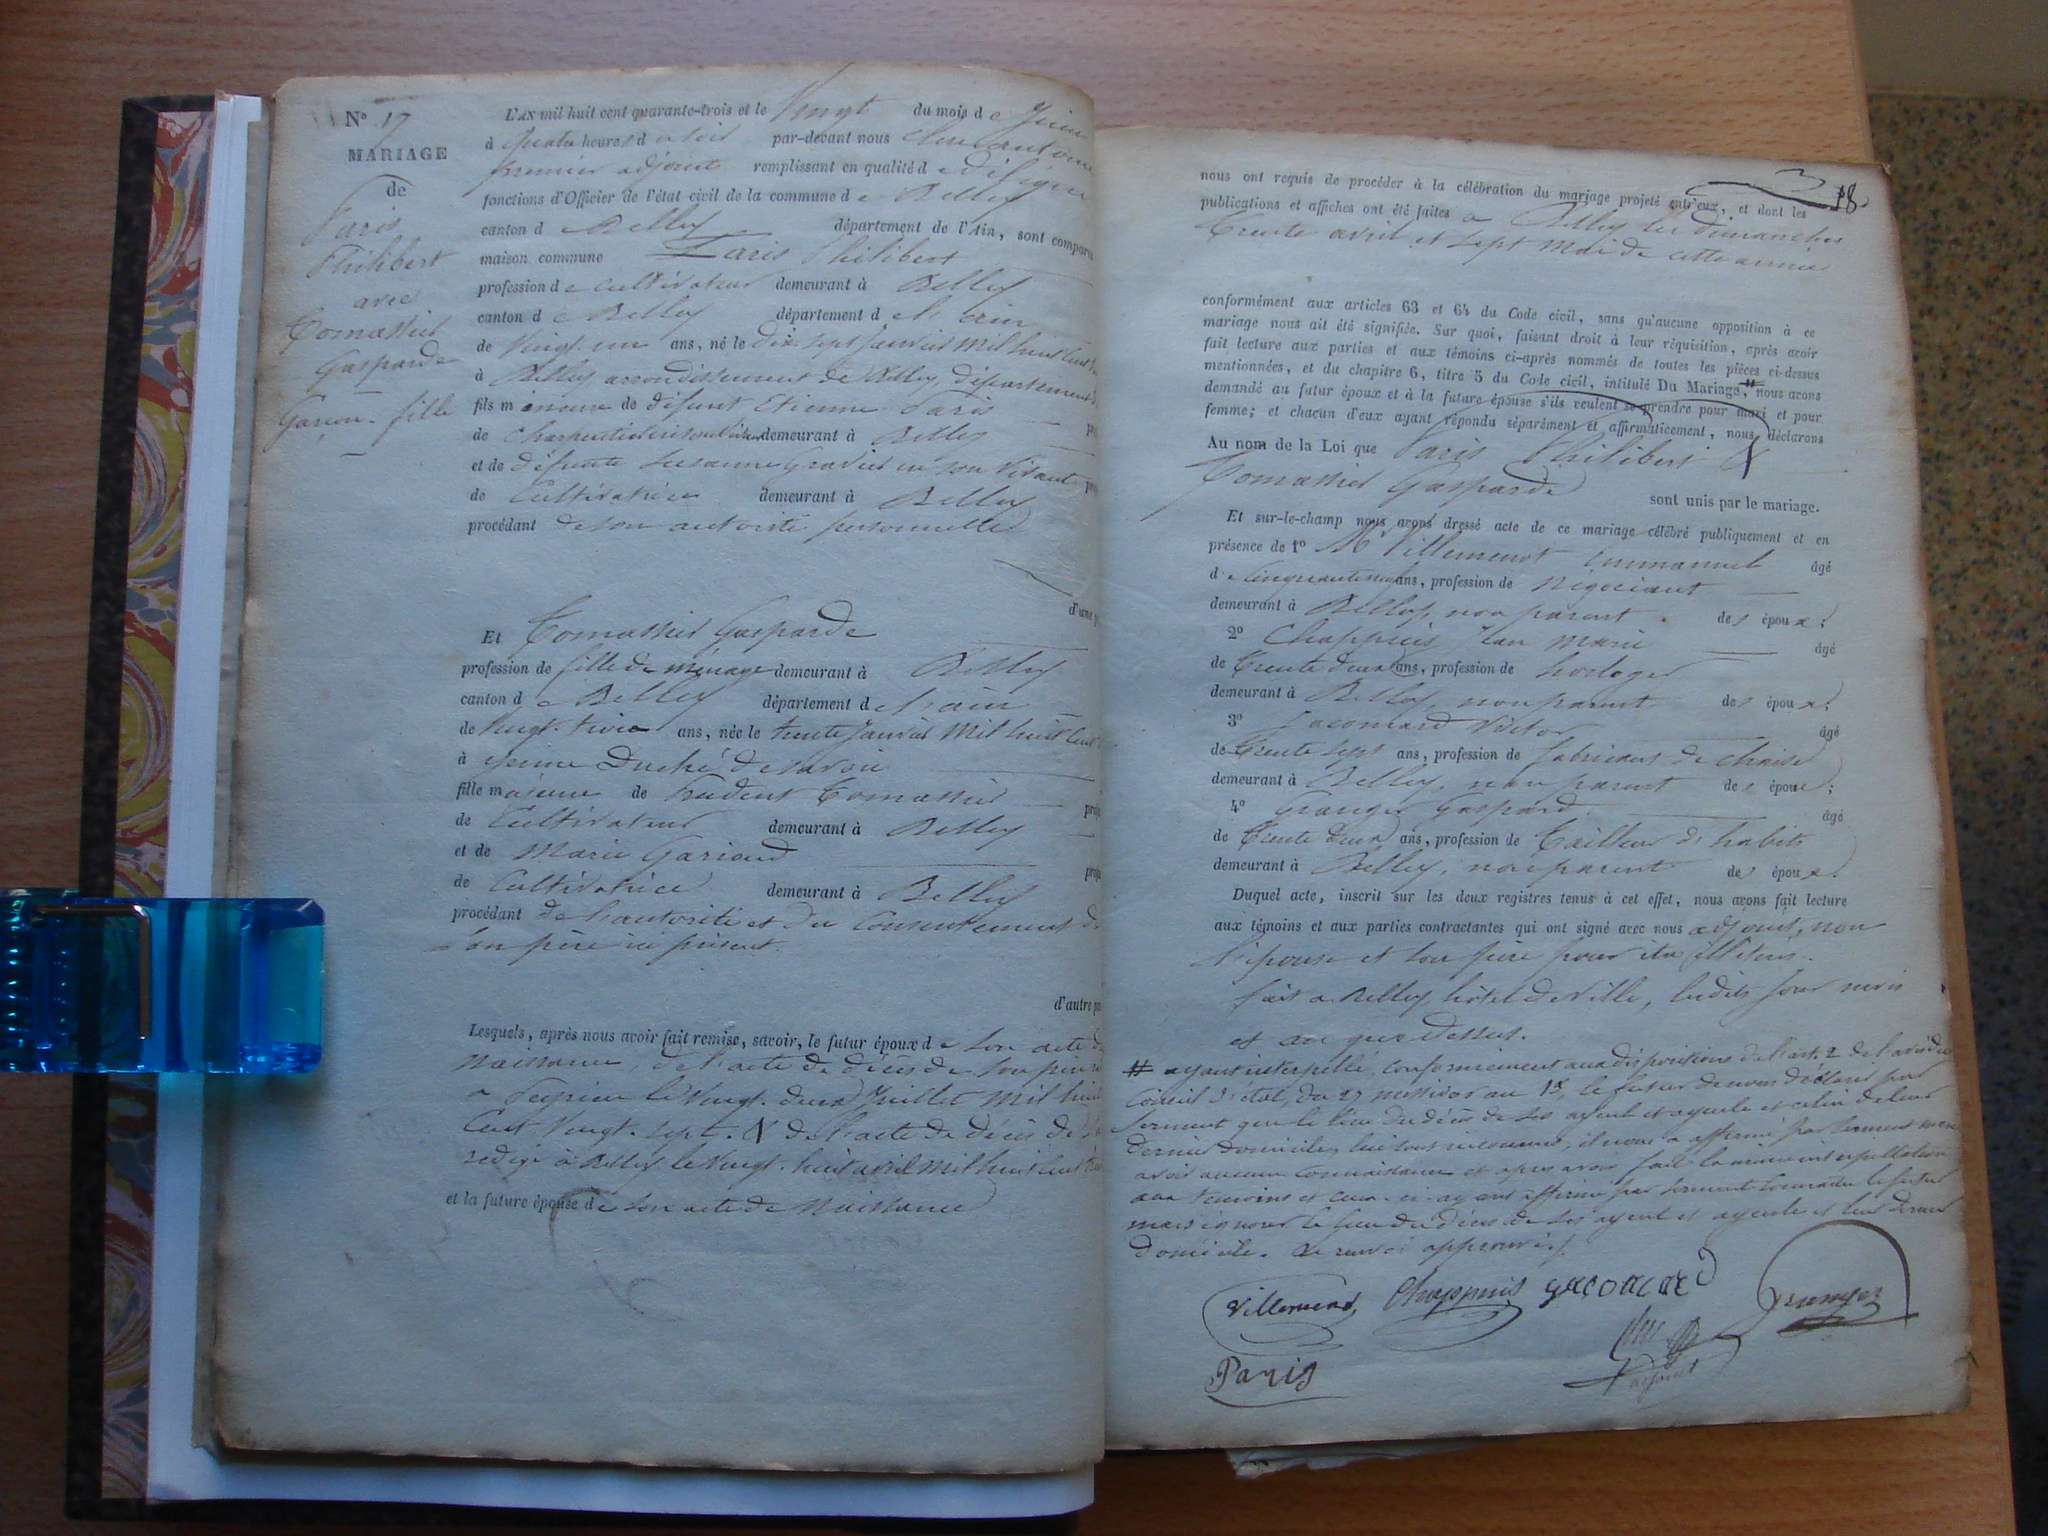 N° 17
MARIAGE
de
Paris
Philibert
avec
Tomassiet
Gasparde
Garçon - fille
L'AN mil huit cent quarante-trois et le Vingt du mois de Juin
à quatre heures du soir par-devant nous
premier adjoint remplissant en qualité de délégué
fonctions d'Officier de l'état civil de la commune de Belley
canton de Belley département de l'Ain, sont comparu
maison commune Paris Philibert
profession de cultivateur demeurant à Belley
canton de Belley département de l'ain
de Vingt-un ans, né le dix sept Janvier mil huit cent
à Belley arrondissement de Belley, département
fils mineur de défunt Etienne Paris
de Charpentier demeurant à Belley
et de défunte Susanne Gravier en son vivant
de Cultivatrice demeurant à Belley
procédant de son autorité personnelle
d'une p
Et Tomassiet Gasparde
profession de fille de ménage demeurant à Belley
canton de Belley département de l'ain
de Vingt-trois ans, née le trente Janvier mil huit cent
à yenne Duché de Savoie
fille majeure de Prudent Tomassiet
de Cultivateur demeurant à Belley
et de Marie Garioud
de Cultivatrice demeurant à Belley
procédant de l'autorité et du Consentement de
son père ici présent.
d'autre pa
Lesquels, après nous avoir fait remise, savoir, le futur époux de son acte de
Naissance, de l'acte de décès de son père
à le Vingt-deux Juillet mil huit
Cent Vingt-sept. & de l'acte de décès de
redigé à Belley le Vingt-huit avril mil huit cent
et la future épouse de son acte de Naissance
18
nous ont requis de procéder à la célébration du mariage projeté entr'eux, et dont les
publications et affiches ont été faites à Belley les dimanches
Trente avril et sept Mai de cette année
conformément aux articles 63 et 64 du Code civil, sans qu'aucune opposition à ce
mariage nous ait été signifiée. Sur quoi, faisant droit à leur réquisition, après avoir
fait lecture aux parties et aux témoins ci-après nommés de toutes les pièces ci-dessus
mentionnées, et du chapitre 6, titre 5 du Code civil, intitulé Du Mariage, # nous avons
demandé au futur époux et à la future épouse s'ils veulent se prendre pour mari et pour
femme; et chacun d'eux ayant répondu séparément et affirmativement, nous déclarons
Au nom de la Loi que Paris Philibert &
Tomassiet Gasparde sont unis par le mariage.
Et sur-le-champ nous avons dressé acte de ce mariage célébré publiquement et en
présence de 1° Mr Villemenot Emmanuel âgé
de ans, profession de Négociant
demeurant à Belley, non parent des époux;
2° Chappuis Jean Marie âgé
de Trente deux ans, profession de horloger
demeurant à Belley, non parent des époux;
3° Jacomard Victor âgé
de Trente sept ans, profession de fabricant de chaise
demeurant à Belley, non parent des époux;
4° Granger Gaspard âgé
de Trente deux ans, profession de Tailleur d'habits
demeurant à Belley, non parent des époux.
Duquel acte, inscrit sur les deux registres tenus à cet effet, nous avons fait lecture
aux témoins et aux parties contractantes qui ont signé avec nous adjoint, non
l'épouse et son père pour être illitérés.
fait à Belley, hôtel de Ville, lesdits jour mois
et an que dessus.
# ayant interpellé, conformément aux dispositions de l'art. 2 de l'avis du
Conseil d'état, du 27 messidor an 13, le futur de nous déclarer par
serment que le lieu du décès de ses ayeul et ayeule et celui de leur
dernier domicile, lui sont inconnus, il nous a affirmé par serment n'en
avoir aucune connaissance et après avoir fait la même interpellation
aux témoins et ceux-ci ayant affirmé par serment connaître le futur
mais ignorer le lieu du décès de ses ayeul et ayeule et leur dernier
domicile. Le renvoi approuvé.
Villemenot Chappuis Granger
Paris adjoint